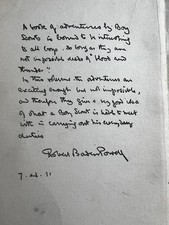 A book of adventures by Boy
Scouts is bound to be interesting
to all boys. So long as they are
not impossible deeds of "blood and
thunder".
In this volume the adventures are
exciting enough but not impossible,
and therefore they give a very good idea
of what a Boy Scout is liable to meet
with in carrying out his everyday
duties
Robert Baden Powell
7. 11